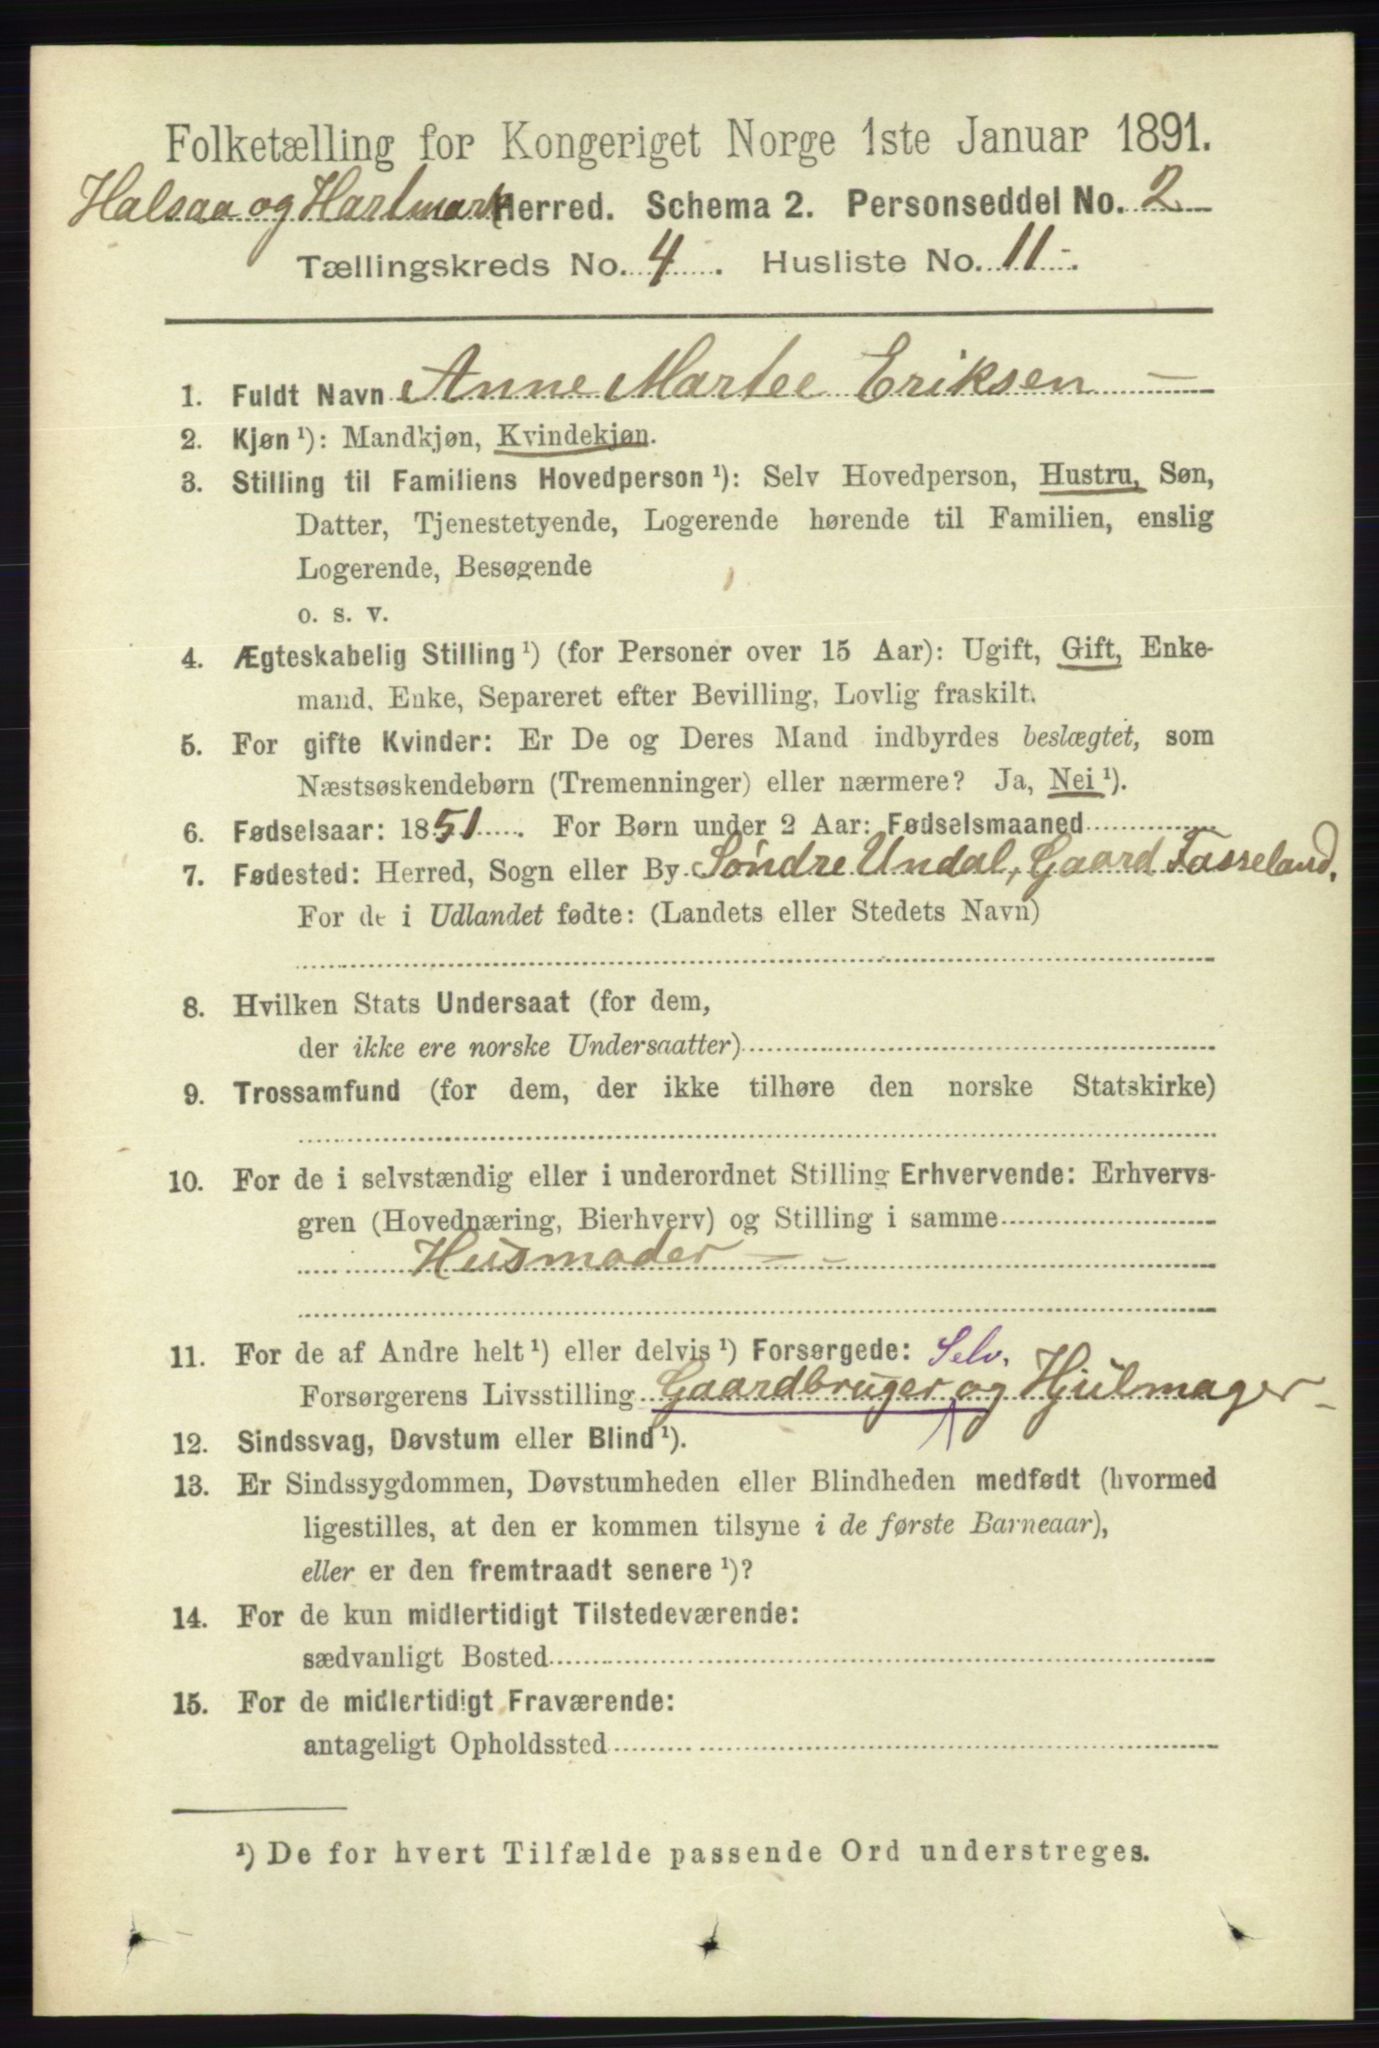 Folketælling for Kongeriget Norge 1ste Januar 1891.
Halsaa og Hartmark Herred. Schema 2. Personseddel No. 2
Tællingskreds No. 4 . Husliste No. 11 .
1. Fuldt Navn Anne Martee Eriksen —
2. Kjøn ¹): Mandkjøn, Kvindekjøn.
3. Stilling til Familiens Hovedperson ¹): Selv Hovedperson, Hustru, Søn,
Datter, Tjenestetyende, Logerende hørende til Familien, enslig
Logerende, Besøgende
o. s. v.
4. Ægteskabelig Stilling ¹) (for Personer over 15 Aar): Ugift, Gift, Enke-
mand, Enke, Separeret efter Bevilling, Lovlig fraskilt.
5. For gifte Kvinder: Er De og Deres Mand indbyrdes beslægtet, som
Næstsøskendebørn (Tremenninger) eller nærmere? Ja, Nei ¹).
6. Fødselsaar: 1851 . For Børn under 2 Aar: Fødselsmaaned
7. Fødested: Herred, Sogn eller By Søndre Undal, Gaard Tasseland.
For de i Udlandet fødte: (Landets eller Stedets Navn)
8. Hvilken Stats Undersaat (for dem,
der ikke ere norske Undersaatter)
9. Trossamfund (for dem, der ikke tilhøre den norske Statskirke)
10. For de i selvstændig eller i underordnet Stilling Erhvervende: Erhvervs-
gren (Hovednæring, Bierhverv) og Stilling i samme
Husmoder — –
11. For de af Andre helt ¹) eller delvis ¹) Forsørgede: Selv.
Forsørgerens Livsstilling Gaardbruger og Hjulmager –
12. Sindssvag, Døvstum eller Blind ¹).
13. Er Sindssygdommen, Døvstumheden eller Blindheden medfødt (hvormed
ligestilles, at den er kommen tilsyne i de første Barneaar),
eller er den fremtraadt senere ¹)?
14. For de kun midlertidigt Tilstedeværende:
sædvanligt Bosted
15. For de midlertidigt Fraværende:
antageligt Opholdssted
¹) De for hvert Tilfælde passende Ord understreges.